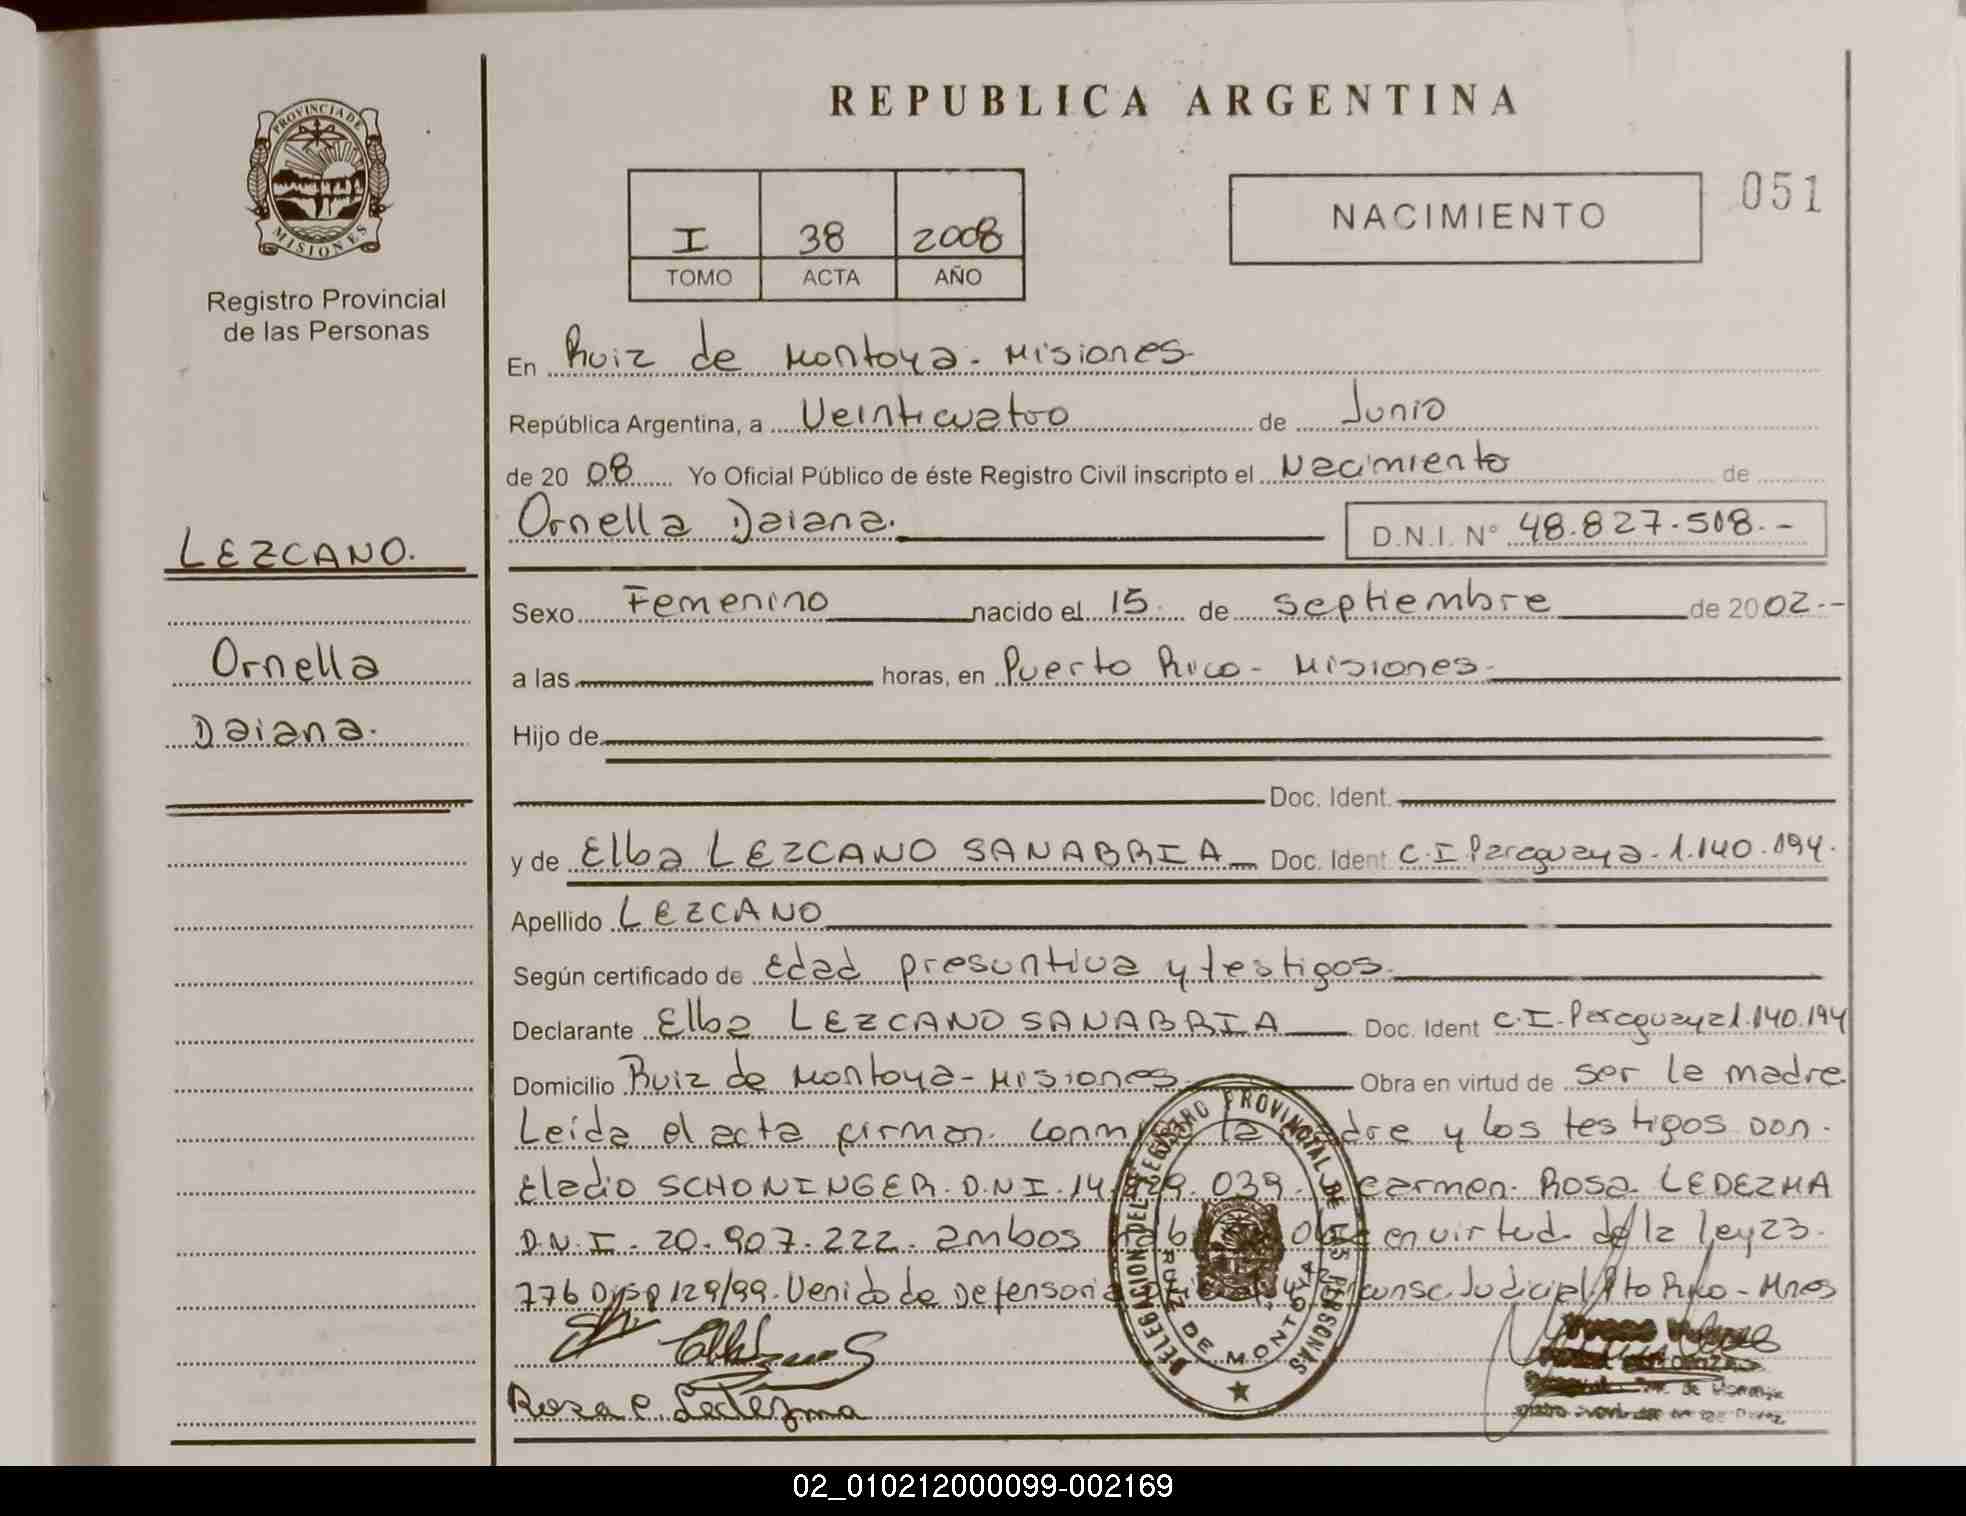 PROVINCIA DE
MISIONES
Registro Provincial
de las Personas
LEZCANO.
Ornella
Daiana.
REPUBLICA ARGENTINA
I 38 2008
TOMO ACTA AÑO
NACIMIENTO
051
En Ruiz de Montoya - Misiones
República Argentina, a Veinticuatro de Junio
de 20 08 Yo Oficial Público de éste Registro Civil inscripto el Nacimiento de
Ornella Daiana. D.N.I. N° 48.827.508.-
Sexo Femenino nacido el 15 de septiembre de 2002.-
a las horas, en Puerto Rico - Misiones.
Hijo de
Doc. Ident.
y de Elba LEZCANO SANABRIA Doc. Ident C.I. Paraguaya. 1.140.194.
Apellido LEZCANO
Según certificado de Edad presuntiva y testigos.
Declarante Elba LEZCANO SANABRIA Doc. Ident C.I. Paraguaya 1.140.194
Domicilio Ruiz de Montoya - Misiones Obra en virtud de ser la madre
Leída el acta firman la y los testigos Don.
Eladio SCHONINGER. D.N.I. 14. 039. Carmen Rosa LEDEZMA
D.N.I. 20.907.222. ambos en virtud de la ley 23.
776 Disp 129/99. Venido de Defensoria Judicial Pto Rico - Mnes
Rosa C. Ledezma
DELEGACION DEL REGISTRO PROVINCIAL DE LAS PERSONAS
RUIZ DE MONTOYA
02_010212000099-002169